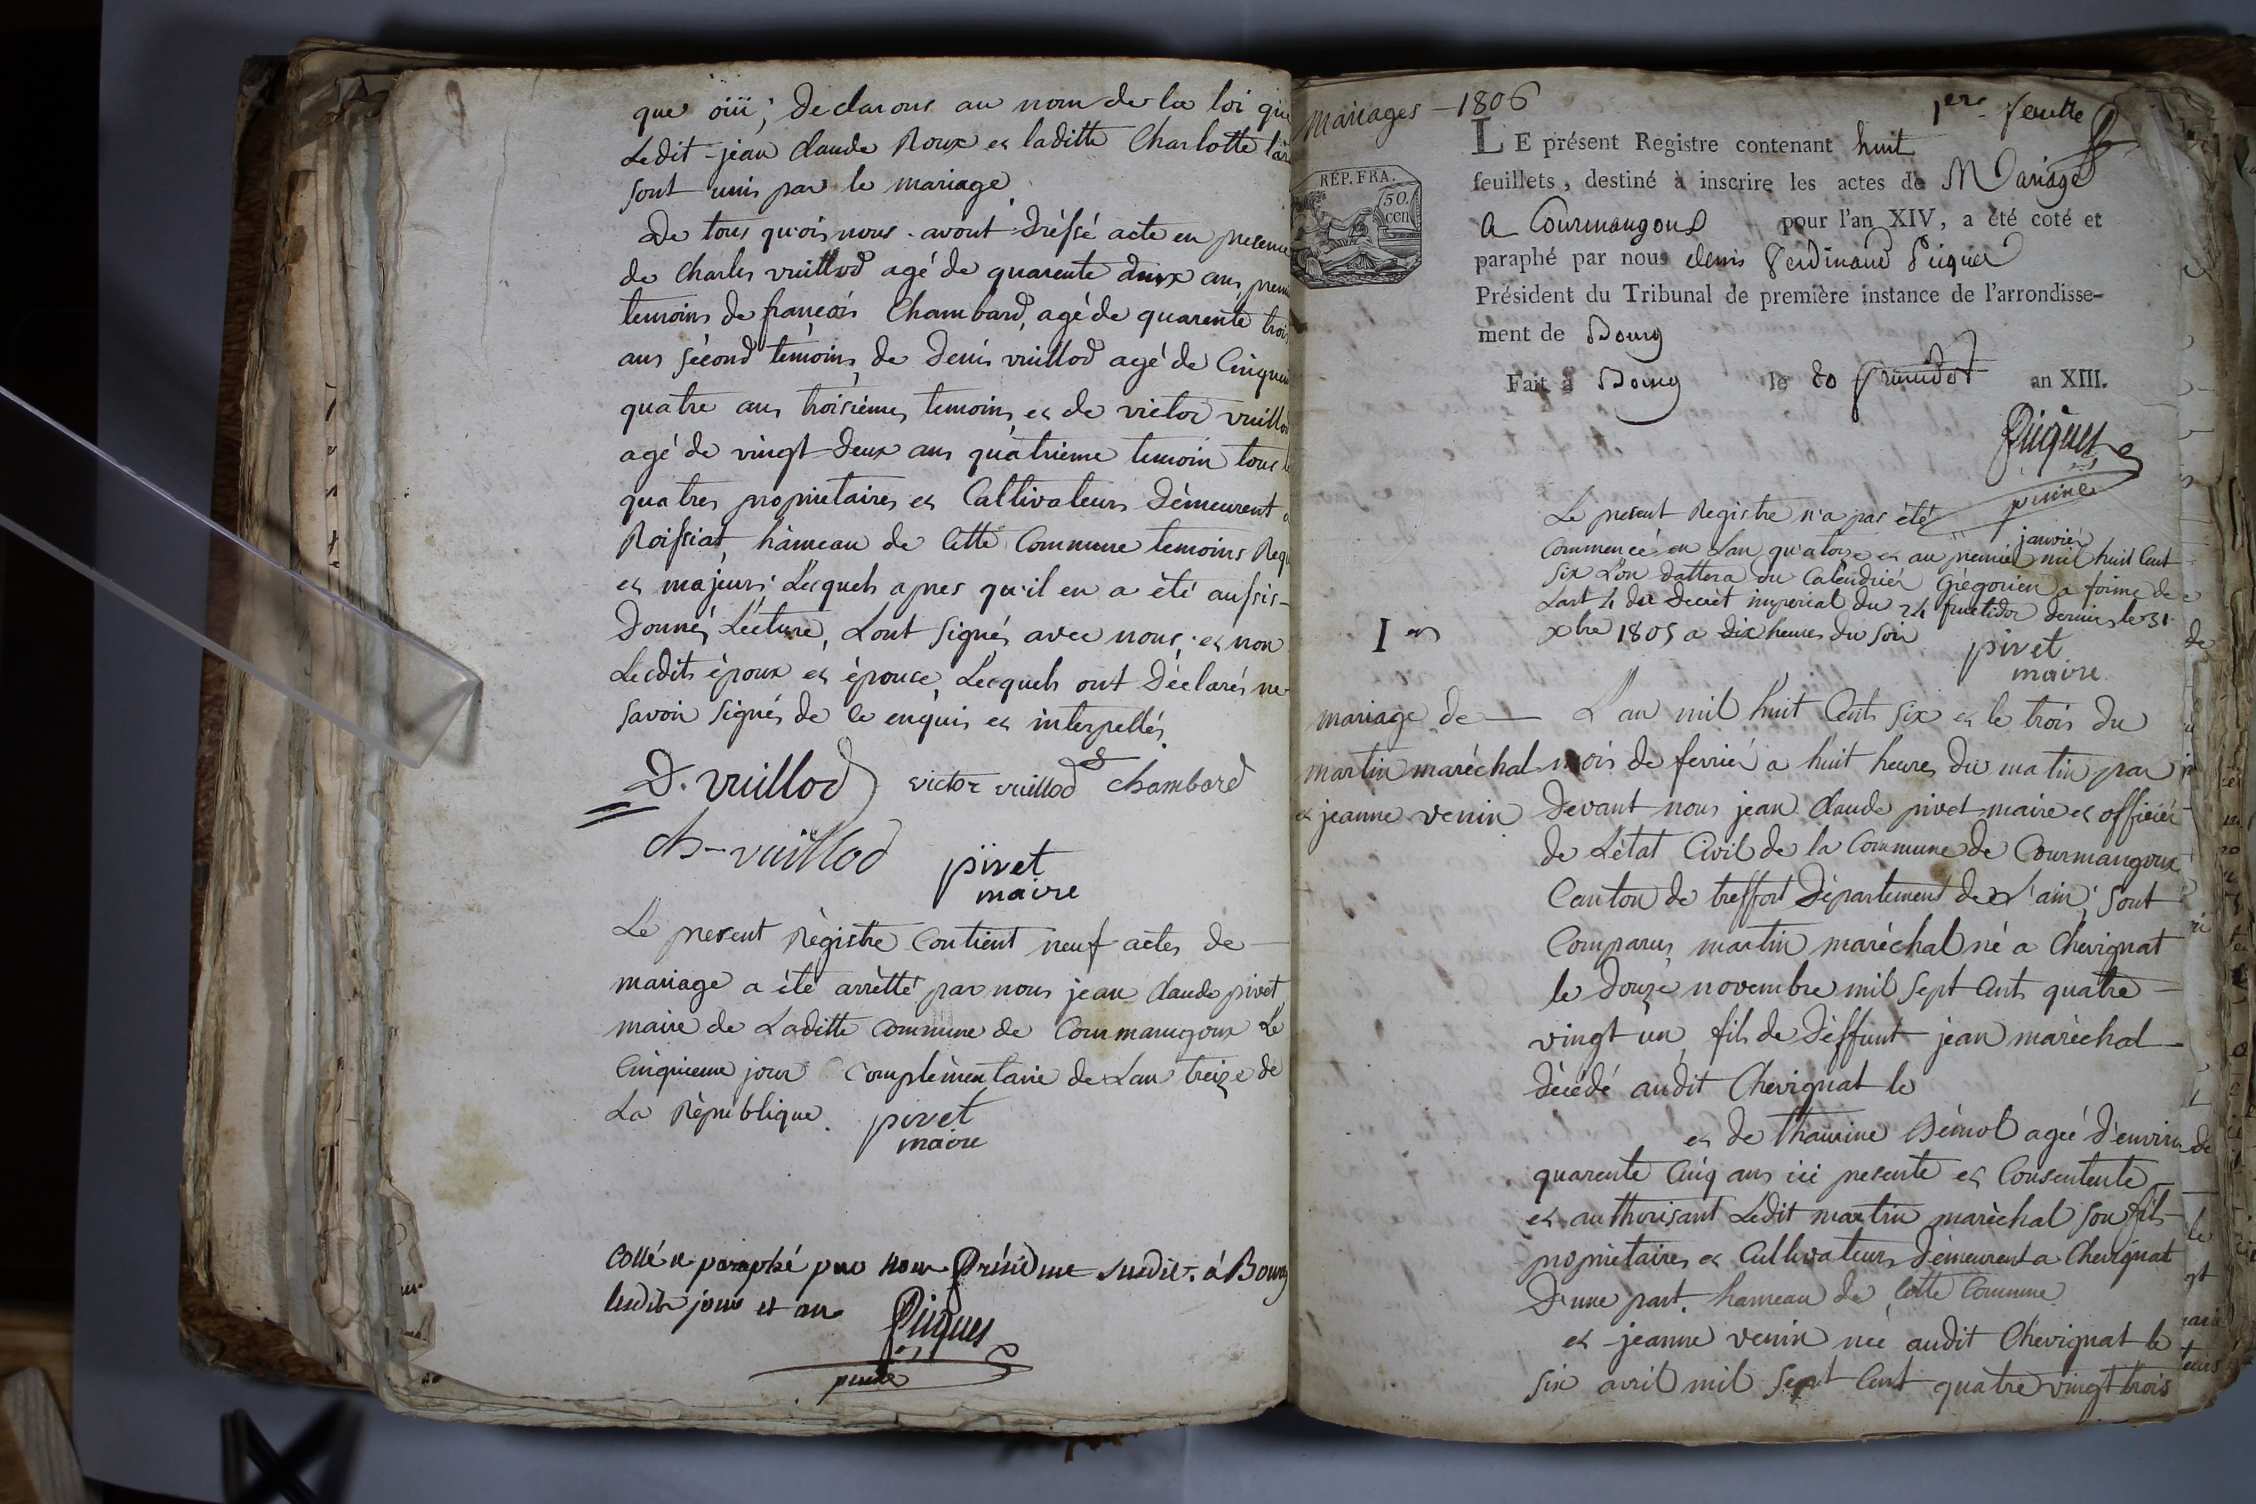 que oüi; declarons au nom de la loi que
Ledit jean claude Roux et laditte Charlotte
sont unis par le mariage.
De tous quois nous avont drèssé acte en presence
de Charles vuillod agé de quarente deux ans, premier
temoins de françois Chambard, agé de quarente trois
ans sécond temoins, de Denis vuillod agé de Cinquente
quatre ans troisièmes temoins, et de victor vuillod
agé de vingt deux ans quatrieme temoin tous
quatres proprietaires et Caltivateurs dèmeurent a
Roissiat, hâmeau de Cette Commune temoins Requis
et majeurs. Lesquels apres qu'il en a èté aussis-
Donnés Lécture, L'ont signés avec nous, et non
Lesdits époux et èpouce, Lesquels ont déclarés ne
savoir signés de ce enquis et interpellés.
D. vuillod victor vuillod chambard
ch-vuillod pivet
maire
Le present Règistre Contient neuf actes de
mariage a été arrètté par nous jean claude pivet
maire de Laditte commune de Courmangoux Le
Cinquieme jour Complèmentaire de Lan treize de
La Rèpublique. pivet
maire
Collé et paraphé par nous Président susdit. à Bourg
lesdits jour et an
Piquet
Mariages - 1806
1ere feuille
LE présent Registre contenant huit
feuillets, destiné à inscrire les actes de Mariage
REP. FRA.
50.
cen
a Courmangoux pour l'an XIV, a été coté et
paraphé par nous denis Ferdinand Piquet
Président du Tribunal de première instance de l'arrondisse-
ment de Bourg
Fait à Bourg le 20 fructidor an XIII.
Piquet
Le present Registre n'a pas été
janvier
Commencé en Lan quatorze et au premier mil huit Cent
six L'on dattera du Calendriér Grègorien a forme de
Lart 4 du Decret imperial du 24 fructidor dernier, le 31
xbre 1805 a dix heures du soir
pivet
maire
Ier
mariage de
martin marèchal
et jeanne venin
L'an mil huit Cents six et le trois du
mois de fevriér a huit heures du matin par
Devant nous jean claude pivet maire et officiér
de L'ètat Civil de la Commune de Courmangoux
Canton de treffort Département de L'ain; sont
Comparus, martin maréchal né a Chevignat
le douze novembre mil sept Cents quatre
vingt un, fils de dèffunt jean marèchal
dècédé audit Chevignat le
et de thavine agée d'environ
quarente Cinq ans ici presente et Consentente
et authorisant Ledit martin marèchal son fils
propriètaires et Cultivateurs Démeurent a Chevignat
D'une part. hameau de Cette Commune
et jeanne venin née audit Chevignat le
six avril mil sept Cent quatre vingt trois